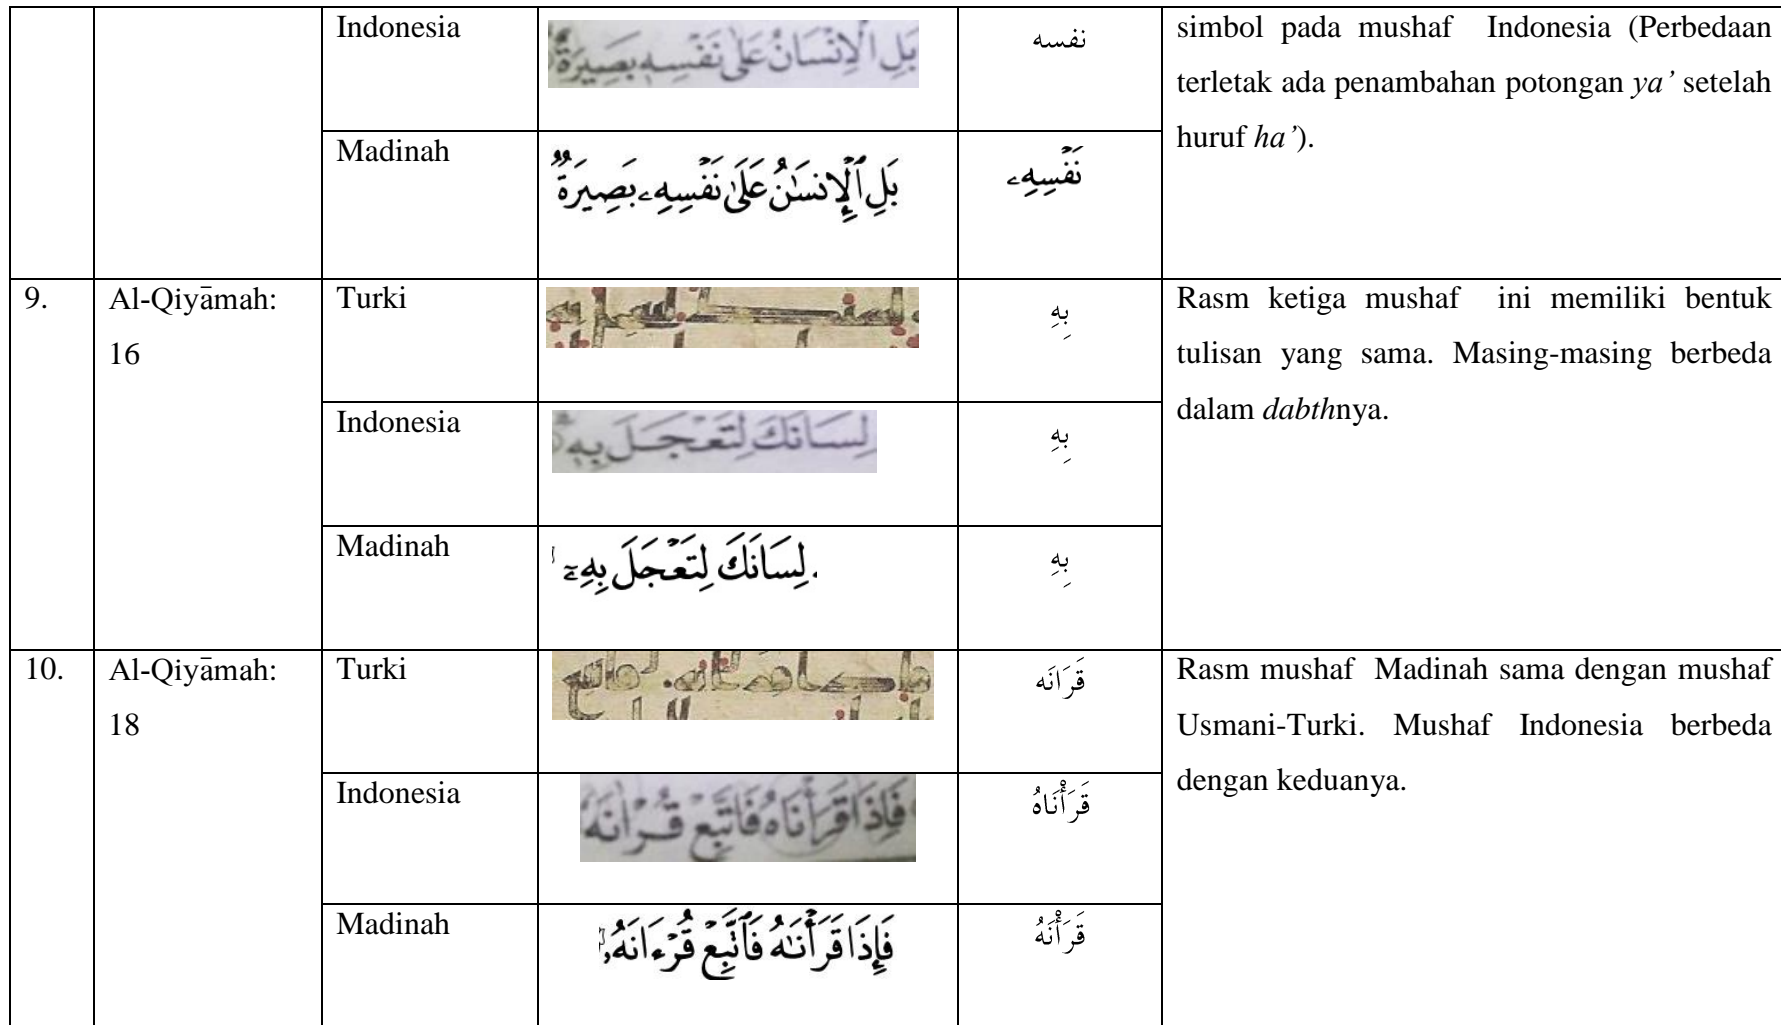 Indonesia
بَلِ الْاِنْسَانُ عَلٰى نَفْسِهٖ بَصِيْرَةٌ
نفسه
simbol pada mushaf Indonesia (Perbedaan
terletak ada penambahan potongan ya’ setelah
huruf ha’).
Madinah
بَلِ ٱلْإِنسَـٰنُ عَلَىٰ نَفْسِهِۦ بَصِيرَةٌ
نَفْسِهِۦ
9.
Al-Qiyāmah:
16
Turki
بِهِ
Rasm ketiga mushaf ini memiliki bentuk
tulisan yang sama. Masing-masing berbeda
dalam dabthnya.
Indonesia
لِسَانَكَ لِتَعْجَلَ بِهٖ
بِهِ
Madinah
لِسَانَكَ لِتَعْجَلَ بِهِۦٓ
بِهِ
10.
Al-Qiyāmah:
18
Turki
قَرَانَه
Rasm mushaf Madinah sama dengan mushaf
Usmani-Turki. Mushaf Indonesia berbeda
dengan keduanya.
Indonesia
فَاِذَا قَرَأْنَاهُ فَاتَّبِعْ قُرْاٰنَهٗ
قَرَأْنَاهُ
Madinah
فَإِذَا قَرَأْنَـٰهُ فَٱتَّبِعْ قُرْءَانَهُۥ
قَرَأْنَهُ